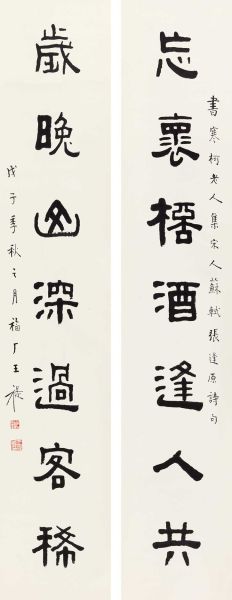 書寒柯老人集宋人蘇軾張逢原詩句
忘褱桮酒逢人共
歲晚山深過客稀
戊子季秋之月福厂王禔